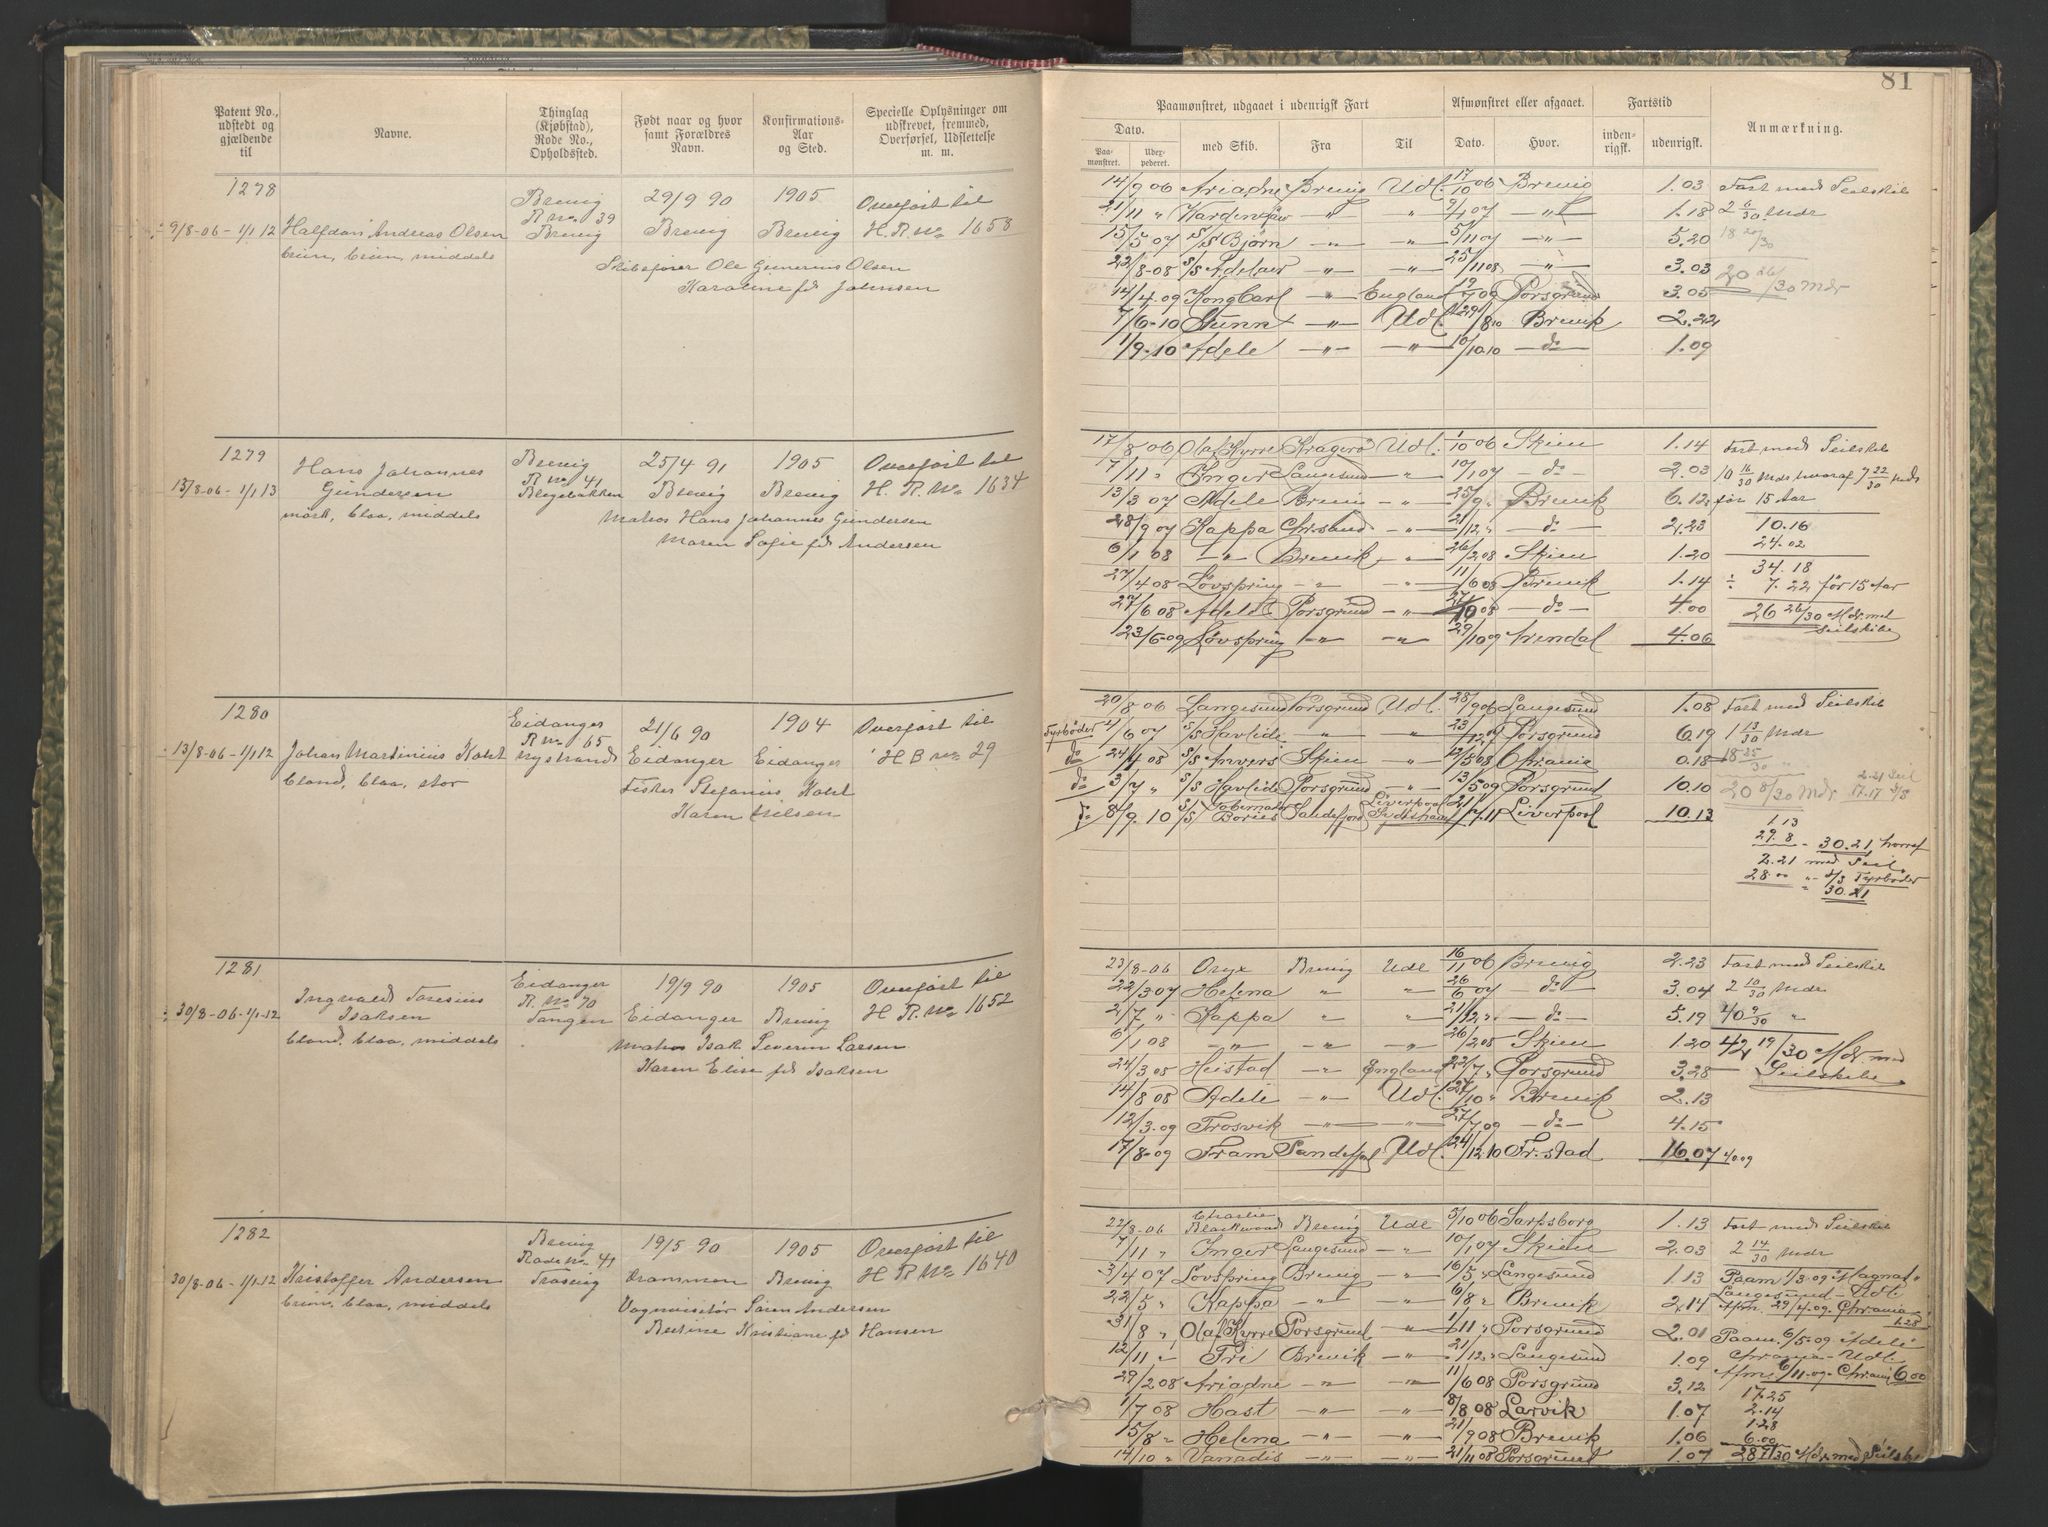 Patent No., udstedt og gjældende til
Navne.
Thinglag (Kjøbstad), Rode No., Opholdssted.
Født naar og hvor samt Forældres Navn.
Konfirmations-Aar og Sted.
Specielle Oplysninger om udskrevet, fremmed, Overførsel, Udslettelse m. m.
1278
9/8-06 - 1/1 12
Halfdan Andreas Olsen
brun, brun, middels
Brevig
R no 39
Brevig
29/9 90
Brevig
1905
Brevig
Overført til
H. R. No 1658
Skibsfører Ole Gunerius Olsen
Karoline fd Johnsen
1279
13/8-06 - 1/1 13
Hans Johannes
Gundersen
mørk, blaa, middels
Brevig
R no 41
Blegebakken
25/4 91
Brevig
1905
Brevig
Overført til
H. R. No 1634
Matros Hans Johannes Gundersen
Maren Sofie fd Andersen
1280
13/8-06 - 1/1 12
Johan Martinius Kalst
blond, blaa, stor
Eidanger
R no 65
Nystrand
21/6 90
Eidanger
1904
Eidanger
Overført til
H B no 29
Fisker Stefanius Kalst
Karen Nilsen
1281
30/8-06-1/1-12
Ingvald
Isaksen
blond, blaa, middels
Eidanger
R. No 70
Tangen
19/9 90
Eidanger
1905
Brevig
Overført til
H R. No 1652
Matros Isak Severin Larsen
Karen Elise fd Isaksen
1282
30/8-06-1/1.12
Kristoffer Andersen
brun, blaa, middels
Brevig
Rode No 41
Trosvig
19/5 90
Drammen
1905
Brevig
Overført til
H R No 1640
Vognvisitør Søren Andersen
Bertine Kristiane fd Hansen
81
Paamønstret, udgaaet i udenrigsk Fart
Afmønstret eller afgaaet.
Fartstid
Anmærkning.
Dato.
Paa-mønstret.
Udex-pederet.
med Skib.
Fra
Til
Dato.
Hvor.
inden-rigsk.
udenrigsk.
14/9 06 Ariadne Brevig Udl. 17/10 06 Brevig 1.03 Fart med Seilskib
21/11 " " " 9/1 07 " 1.18 2 6/30 Mdr
15/5 07 S/S Bjørn " " 5/11 07 " 5.20 18 20/30
22/8-08 S/S Adelaer " " 25/11 08 " 3.03 20 26/30 Mdr
14/4.09 Kong Carl " England 19/7 09 Porsgrund 3.05
7/6-10 " Udl. 29/8 10 Brevik 2.22
1/9-10 Adele " " 10/10.10 do 1.09
17/8 06 Olaf Kyrre Kragerø Udl. 1/10 06 Skien 1.14 Fart med Seilskib
7/11 " Inger Langesund " 10/1 07 do 2.03 10 16/30 Mdr hvoraf 7 22/30 Mdr
13/3 07 Adele Brevig " 25/9 " Brevik 6.12 før 15 Aar
28/9 07 Kappa Chr.sand " 21/12 " do 2.23 10.16
6/1 08 " Brevik " 26/2 08 Skien 1.20 24.02
34.18
27/4 08 Løvspring " " 11/6 08 Brevik 1.14 ÷ 7.22 før 15 Aar
27/6 08 Adele Porsgrund " 27/10 08 do 4.00 26 26/30 Mdr. med
Seilskibe
23/6-09 Løvspring " " 29/10 09 Arendal 4.06
20/8 06 Langesund Porsgrund Udl. 28/9 06 Langesund 1.08 Fart med Seilskib
Fyrbøder 4/6 07 S/S Havlide " " 23/12 07 Porsgrund 6.19 1 13/30 Mdr
do 24/4 08 S/S Anvers Skien " 12/5 08 Chrania 0.18 18 25/30 "
do 3/7 " S/S Havlide Porsgrund " 13/5 09 Porsgrund 10.10 20 8/30 Mdr 2.21 Seil
17.17 S/S
do 8/9 10 S/S Gobernador Bories Sandefjord Liverpool 21/7.11 Liverpool 10.13
1.13
29.8 - 30.21, hvoraf
2.21 med Seil
28.00 " S/S Fyrbøder
= 30.21
23/8-06 Oryx Brevig Udl 16/11 06 Brevig 2.23 Fart med Seilskib
22/3 07 Helena " " 26/6 07 do 3.04 2 10/30 Mdr
2/7 " Kappa " " 21/12 " do 5.19 40 9/30 "
6/1 08 " " " 26/2 08 Skien 1.20 42 19/30 Mdr. med
Seilskibe
24/3 08 Heistad " England 22/7 " Porsgrund 3.28
14/8 08 Adele " Udl. 27/10 " Brevik 2.13
12/3.09 Trosvik " " 27/7 09 do 4.15
17/8-09 Fram Sandefj. Udl. 24/12 10 Fr.stad 16.07 40.09
22/8-06 Charlie Blackwood Brevig Udl 5/10 06 Sarpsborg 1.13 Fart med Seilskib
7/11 " Inger Langesund " 10/1 07 Skien 2.03 2 14/30 Mdr
3/4 07 Løvspring Brevig " 16/5 " Langesund 1.13 Paam 1/3-09 "Magnat"
22/5 " Kappa " " 6/8 " Brevik 2.14 Langesund - Udl.
Afm. 29/4.09. Chrania 1.28
31/8 " Olaf Kyrre Porsgrund " 1/11 " Porsgrund 2.01 Paam. 6/5-09 "Adele"
12/11 " Fri Brevik " 21/12 " Langesund 1.09 Chrania - Udl.
29/2 08 Ariadne " " 11/6 08 Porsgrund 3.12 Afm. 6/11-09-Chrania 6.00
1/7 08 Hast " " 8/8 08 Larvik 1.07
17.25
2.14
1.28
6.00
15/8 " Helena " " 21/9 08 Brevik 1.06
14/10 " Vanadis " " 21/11 08 Porsgrund 1.07 Mdr. med Seilskib